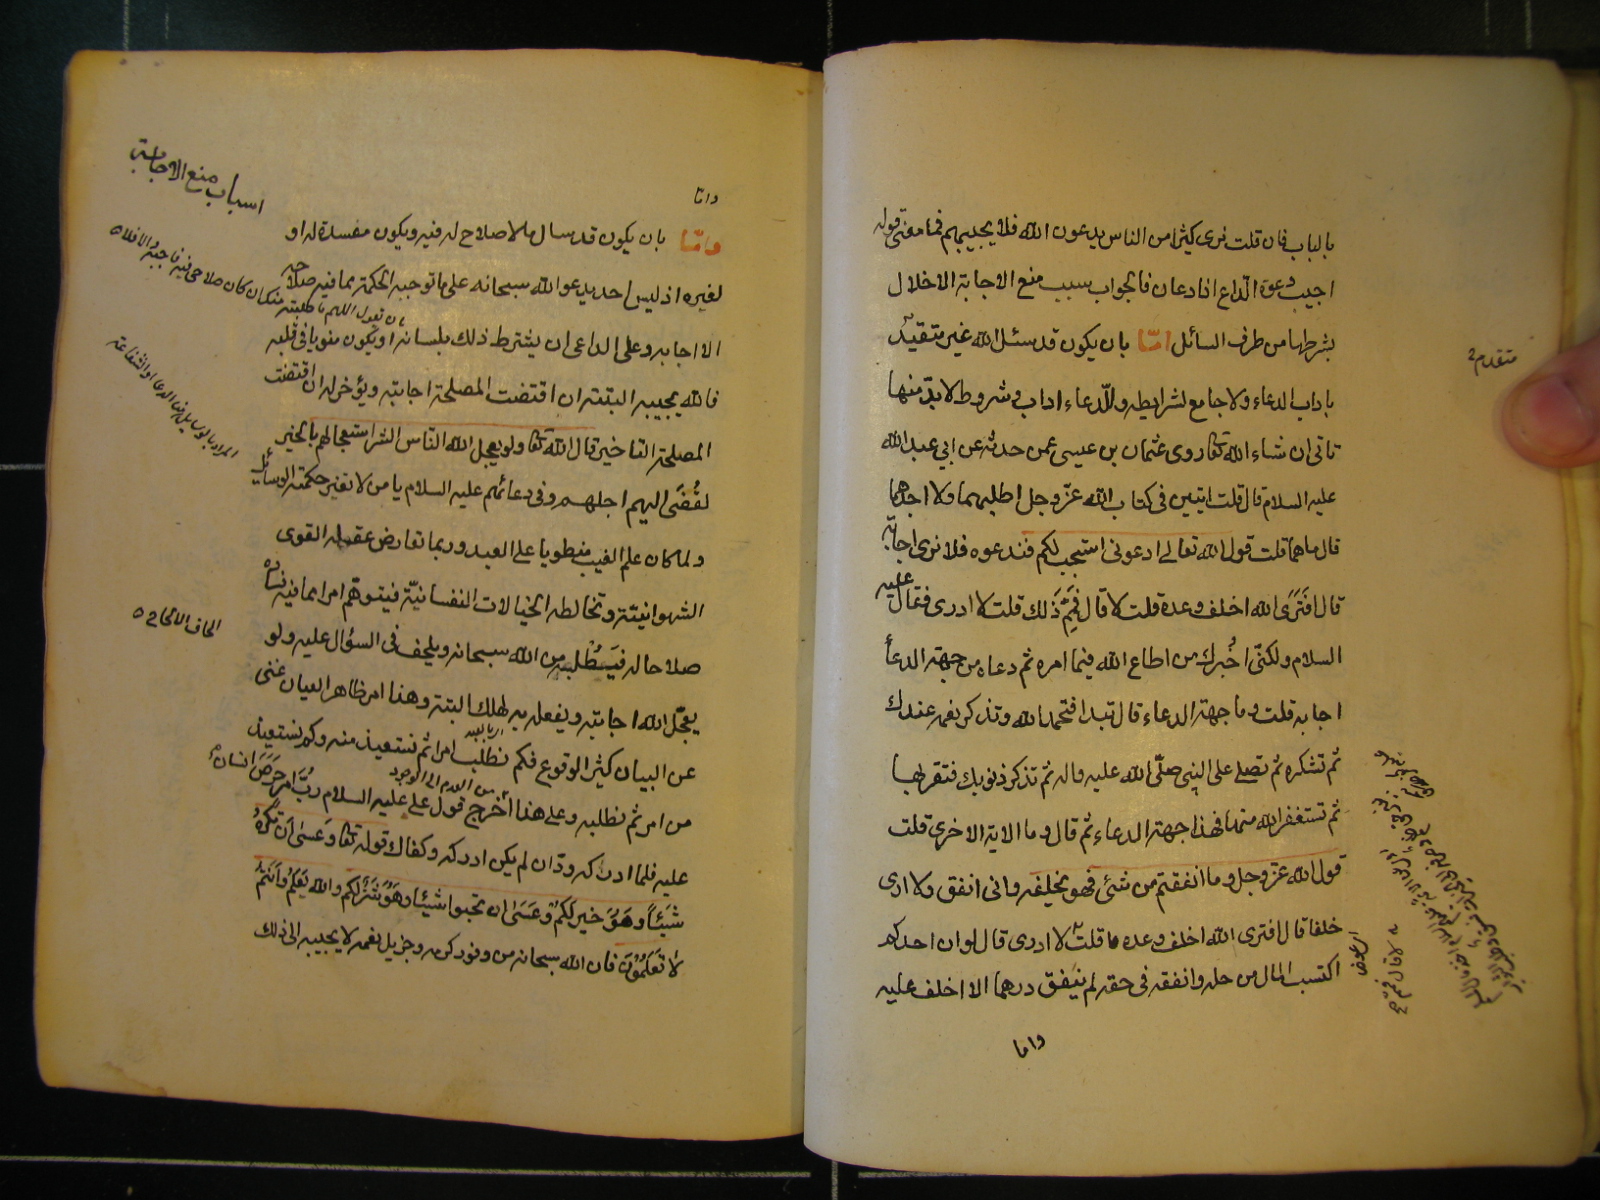 بالباب فان قلت نرى كثيرا من الناس يدعون الله فلا يجيبهم فما معنى قوله
اجيب دعوة الداع اذا دعان فالجواب سبب منع الاجابة الاخلال
بشرطها من طرف السائل امّا بان يكون قد سئل الله غير متقيد
باداب الدعاء ولا جامع لشرايطه وللدّعاء اداب وشروط لا بدّ منها
تاتى ان شاء الله تعا روى عثمان بن عيسى عمن حدثه عن ابي عبد الله
عليه السلام قال قلت ايتين فى كتاب الله عزّ وجل اطلبهما ولا اجدهما
قال ما هما قلت قول الله تعالى ادعونى استجب لكم فندعوه فلا نرى اجابة
قال افترى الله اخلف وعده قلت لا قال فممّ ذلك قلت لا ادرى فقال عليه
السلام ولكنّى اخبرك من اطاع الله فيما امره ثم دعاه من جهة الدعأ
اجابه قلت وما جهة الدعاء قال تبدا فتحمد الله وتذكر نعمه عندك
ثم تشكره ثم تصلى على النبى صلّى الله عليه واله ثم تذكر ذنوبك فتقر بها
ثم تستغفر الله منها فهذا جهة الدعاء ثم قال وما الاية الاخرى قلت
قول الله عزّ وجل وما انفقتم من شئ فهو يخلفه وانى انفق ولا ارى
خلفا قال افترى الله اخلف وعده قلت لا ادرى قال لو ان احدكم
اكتسب المال من حله وانفقه فى حقه لم ينفق درهما الا اخلف عليه
واما
متقدم
واما
وامّا بان يكون قد سال ما لا صلاح له فيه ويكون مفسدة له او
لغيره اذ ليس احد يدعو الله سبحانه على ما توجبه الحكمة بما فيه صلاحه
الا اجابه وعلى الداعى ان يشترط ذلك بلسانه او يكون منويا فى قلبه
فالله يجيبه البتة ان اقتضت المصلحة اجابته ويؤخر له ان اقتضت
المصلحة التاخير قال الله تعا ولو يعجل الله الناس الشر استعجالهم بالخير
لقُضى اليهم اجلهم وفى دعائهم عليه السلام يا من لا تغير حكمته الوسائل
ولما كان علم الغيب منطويا على العبد وربما تعارض عقله القوى
الشهوانية وتخالطه الخيالات النفسانيّة فيتوهّم امرا مما فيه فساده
صلاحا له فيطلبه من الله سبحانه ويلحف فى السؤال عليه ولو
يعجّل الله اجابته ويفعله به لهلك البتة وهذا امر ظاهر العيان غنى
عن البيان كثير الوقوع فكم نطلب امرا ثم نستعيذ منه وكم نستعيذ
من امر ثم نطلبه وعلى هذا خُرّج قول على عليه السلام ربّ امر حرص انسان
عليه فلما ادركه ودّ ان لم يكن ادركه وكفاك قوله تعا وعسى ان تكرهوا
شيئاً وهو خير لكم وعسى ان تحبوا شيئا وهو شرّ لكم والله يعلم وانتم
لا تعلمون فان الله سبحانه من وفور كرمه وجزيل نعمه لا يجيبه الى ذلك
اسباب منع الاجابة
المراد بالوسايل هنا الدعا او الشفاعة